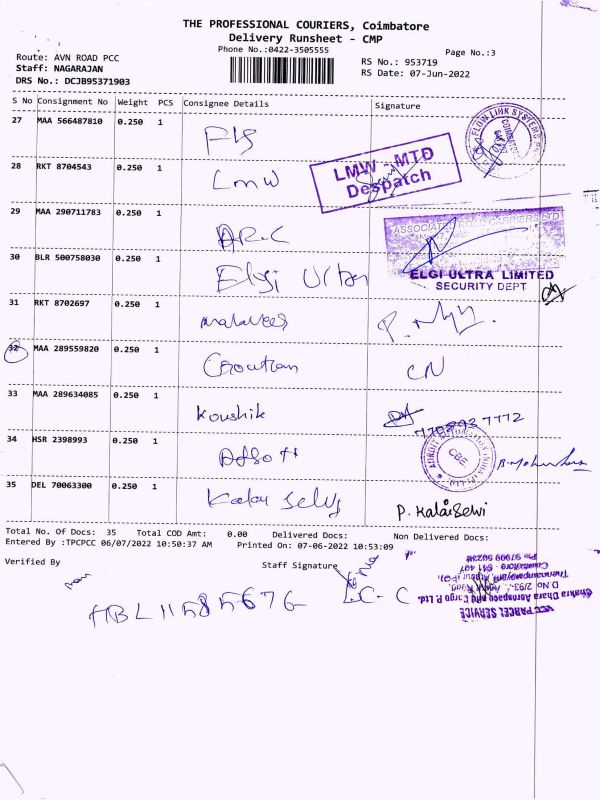 THE PROFESSIONAL COURIERS, Coimbatore
Delivery Runsheet - CMP
Phone No.:0422-3505555
Page No.:3
Route: AVN ROAD PCC
Staff: NAGARAJAN
DRS No.: DCJB95371903
RS No.: 953719
RS Date: 07-Jun-2022
S No Consignment No Weight PCS Consignee Details Signature
27 MAA 566487810 0.250 1
28 RKT 8704543 0.250 1 Lmw
LMW - MTD
Despatch
29 MAA 290711783 0.250 1 ARC
30 BLR 500758030 0.250 1 Elgi Ultra
ELGI ULTRA LIMITED
SECURITY DEPT
31 RKT 8702697 0.250 1
32 MAA 289559820 0.250 1 CN
33 MAA 289634085 0.250 1 Koushik
34 HSR 2398993 0.250 1
CBE
35 DEL 70063300 0.250 1 Kalai Selvi P. KalaiSelvi
Total No. Of Docs: 35 Total COD Amt: 0.00 Delivered Docs: Non Delivered Docs:
Entered By :TPCPCC 06/07/2022 10:50:37 AM Printed On: 07-06-2022 10:53:09
Verified By Staff Signature
PARCEL SERVICE
Chakra Dhara Aerospace and Cargo P. Ltd.
HBL11585676